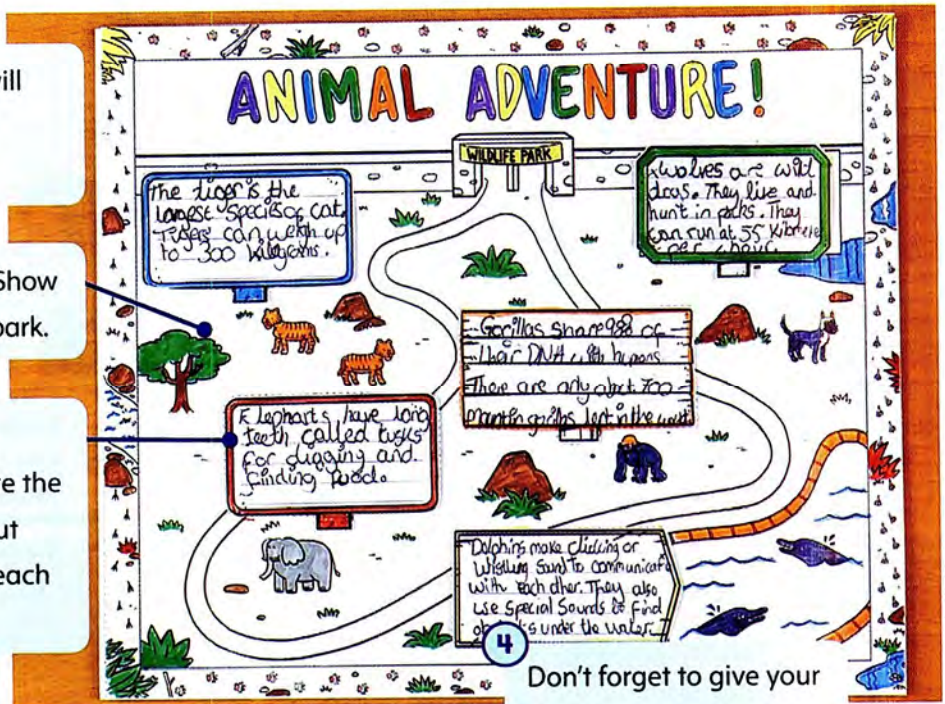 ill
Show
park.
e the
ut
each
ANIMAL ADVENTURE!
WILDLIFE PARK
The tiger is the
largest species of cat.
Tigers can weigh up
to 300 kilograms.
wolves are wild
dogs. They live and
hunt in packs. They
can run at 55 kilometre
per hour.
Gorillas share 98% of
their DNA with humans.
There are only about 700
mountain gorillas left in the
Elephants have long
teeth called tusks
for digging and
finding food.
Dolphins make clicking or
whistling sound to communicate
with each other. They also
use special sounds to find
under the water.
4
Don't forget to give your